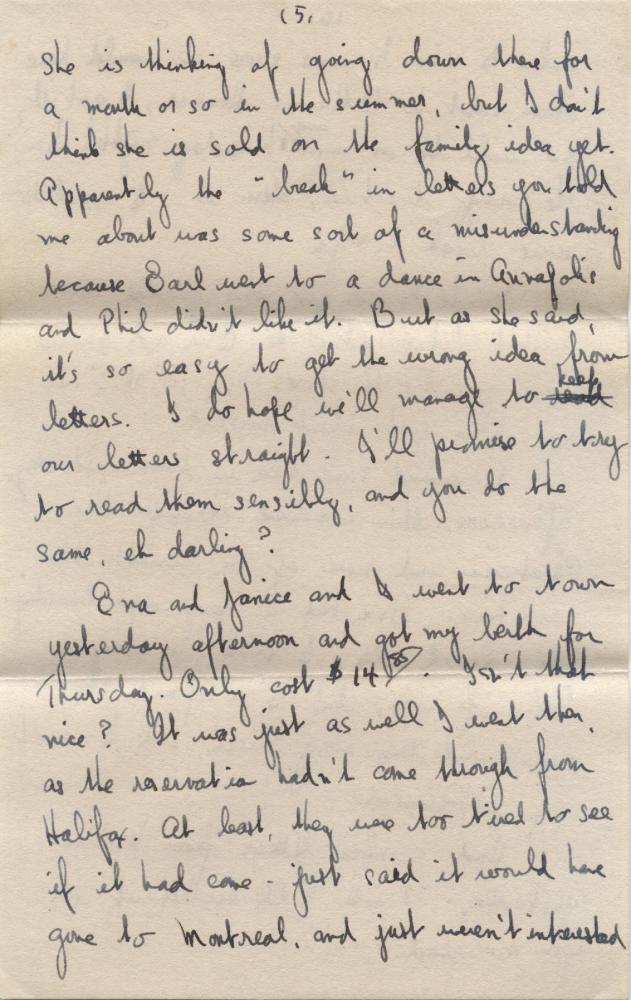 (5)
She is thinking of going down there for
a month or so in the summer, but I don't
think she is sold on the family idea yet.
Apparently the "break" in letters you told
me about was some sort of a misunderstanding
because Earl went to a dance in Annapolis
and Phil didn't like it. But as she said,
it's so easy to get the wrong idea from
keep
letters. I do hope we'll manage to read
our letters straight. I'll promise to try
to read them sensibly, and you do the
same, eh darling?
Eva and Janice and I went to town
yesterday afternoon and got my berth for
Thursday. Only cost $14.85. Isn't that
nice? It was just as well I went then,
as the reservation hadn't come through from
Halifax. At least, they were too tired to see
if it had come - just said it would have
gone to Montreal, and just weren't interested